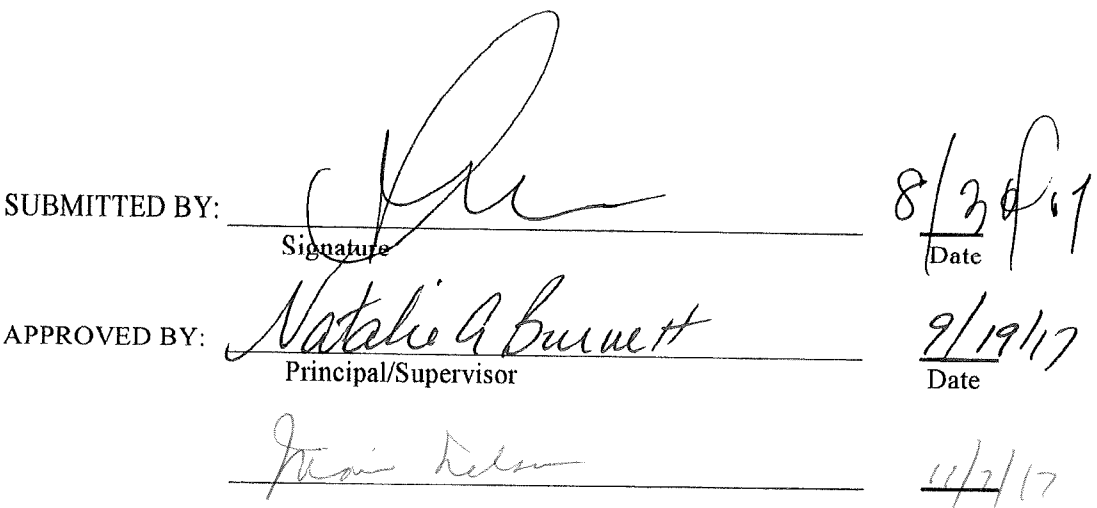 SUBMITTED BY:
Signature
Date
APPROVED BY: Natalie A Burnett 9/19/17
Principal/Supervisor Date
11/7/17